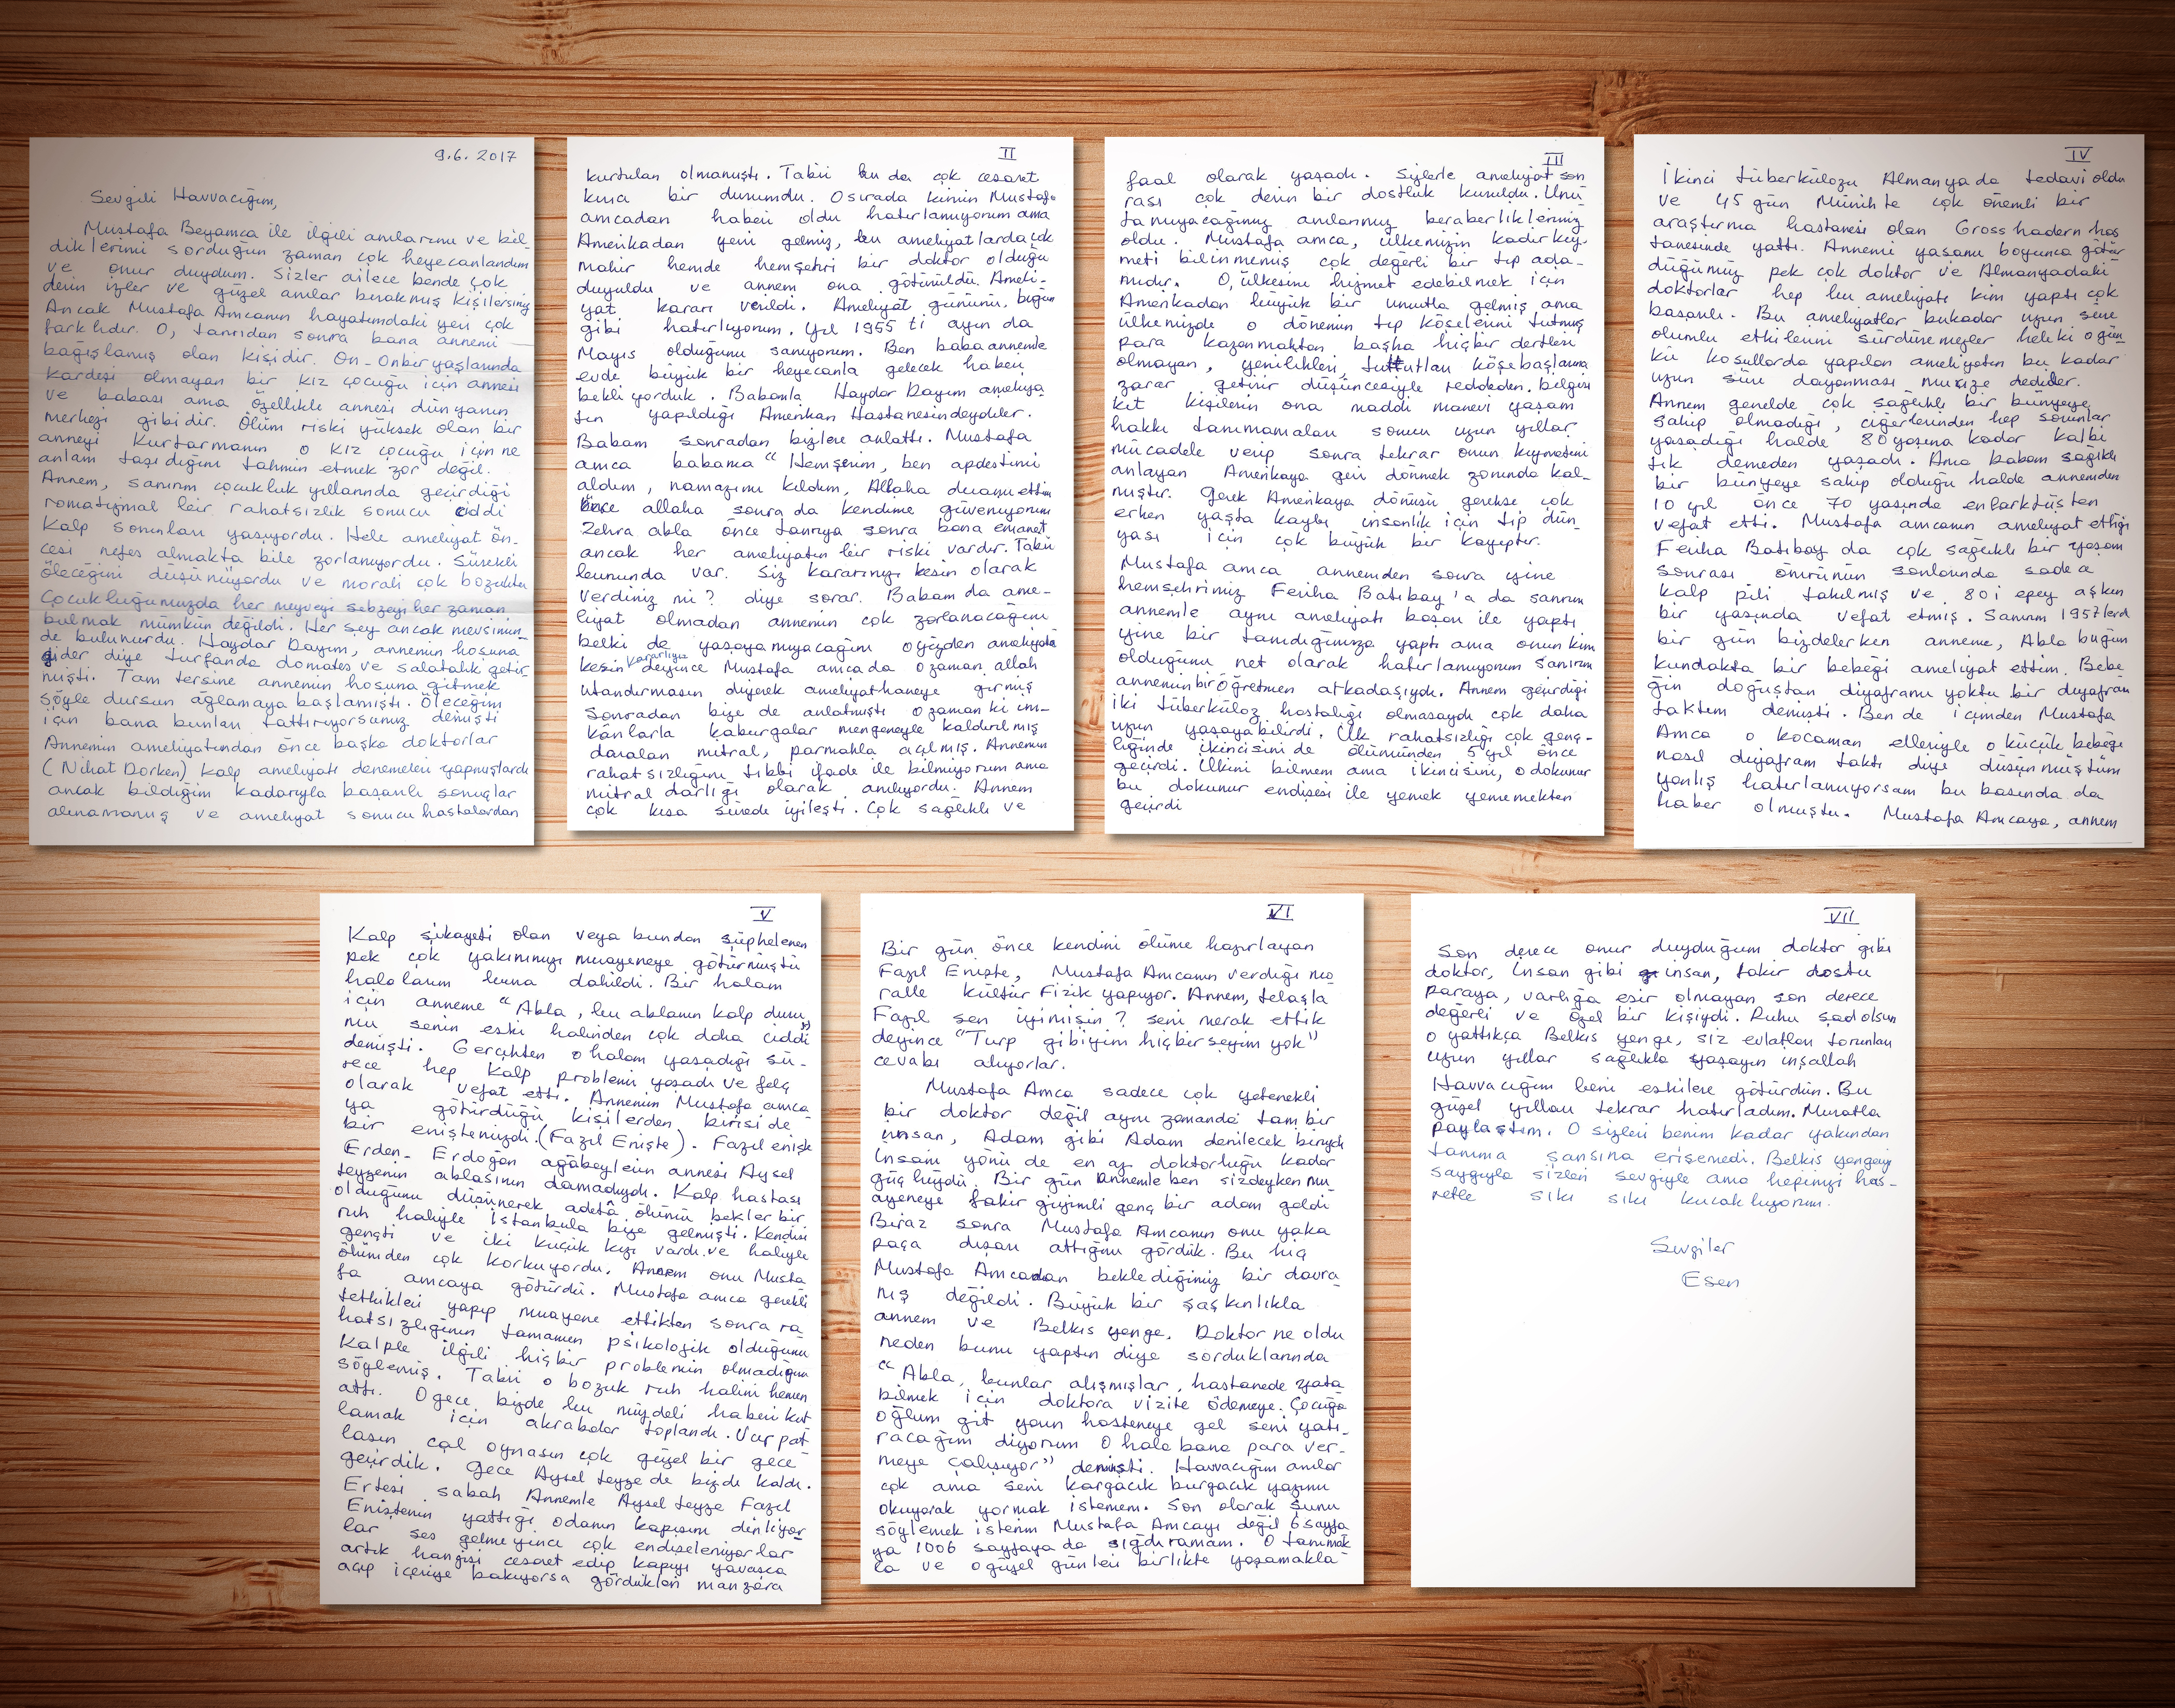 9.6.2017
Sevgili Havvacığım,
Mustafa Beyamca ile ilgili anılarımı ve bil-
diklerimi sorduğun zaman çok heyecanlandım
ve onur duydum. Sizler ailece bende çok
derin izler ve güzel anılar bırakmış kişilersiniz
Ancak Mustafa Amcanın hayatımdaki yeri çok
farklıdır. O, tanrıdan sonra bana annemi
bağışlamış olan kişidir. On-Onbir yaşlarında
kardeşi olmayan bir kız çocuğu için annesi
ve babası ama özellikle annesi dünyanın
merkezi gibidir. Ölüm riski yüksek olan bir
anneyi kurtarmanın o kız çocuğu için ne
anlam taşıdığını tahmin etmek zor değil.
Annem, sanırım çocukluk yıllarında geçirdiği
romatizmal bir rahatsızlık sonucu ciddi
kalp sorunları yaşıyordu. Hele ameliyat ön-
cesi nefes almakta bile zorlanıyordu. Sürekli
öleceğini düşünüyordu ve morali çok bozuktu
Çocukluğumuzda her meyveyi sebzeyi her zaman
bulmak mümkün değildi. Her şey ancak mevsimin-
de bulunurdu. Haydar Dayım, annemin hoşuna
gider diye turfanda domates ve salatalık getir-
mişti. Tam tersine annemin hoşuna gitmek
şöyle dursun ağlamaya başlamıştı. Öleceğim
için bana bunları tattırıyorsunuz demişti
Annemin ameliyatından önce başka doktorlar
(Nihat Dorken) kalp ameliyatı denemeleri yapmışlardı
ancak bildiğim kadarıyla başarılı sonuçlar
alınamamış ve ameliyat sonucu hastalardan
II
kurtulan olmamıştı. Tabii bu da çok cesaret
kırıcı bir durumdu. O sırada kimin Mustafa
amcadan haberi oldu hatırlamıyorum ama
Amerikadan yeni gelmiş, bu ameliyatlarda çok
mahir hemde hemşehri bir doktor olduğu
duyuldu ve annem ona götürüldü. Ameli-
yat kararı verildi. Ameliyat gününü, bugün
gibi hatırlıyorum. Yıl 1955 ti ayın da
Mayıs olduğunu sanıyorum. Ben babaannemle
evde büyük bir heyecanla gelecek haberi
bekliyorduk. Babamla Haydar Dayım ameliya
tın yapıldığı Amerikan Hastanesindeydiler.
Babam sonradan bizlere anlattı. Mustafa
amca babama "Hemşerim, ben apdestimi
aldım, namazımı kıldım, Allaha duamı ettim
Önce allaha sonra da kendime güveniyorum
Zehra abla önce tanrıya sonra bana emanet
ancak her ameliyatın bir riski vardır. Tabii
bununda var. Siz kararınızı kesin olarak
verdiniz mi? diye sorar. Babam da ame-
liyat olmadan annemin çok zorlanacağını
belki de yaşayamıyacağını o yüzden ameliyata
kararlıyız
kesin deyince Mustafa amcada o zaman allah
utandırmasın diyerek ameliyathaneye girmiş
Sonradan bize de anlatmıştı o zamanki im-
kânlarla kaburgalar mengeneyle kaldırılmış
daralan mitral, parmakla açılmış. Annemin
rahatsızlığını tıbbi ifade ile bilmiyorum ama
mitral darlığı olarak anılıyordu. Annem
çok kısa sürede iyileşti. Çok sağlıklı ve
III
faal olarak yaşadı. Sizlerle ameliyat son
rası çok derin bir dostluk kuruldu. Unu
tamıyacağımız anılarımız beraberliklerimiz
oldu. Mustafa amca, ülkemizin kadir kıy-
meti bilinmemiş çok değerli bir tıp ada-
mıdır. O, ülkesine hizmet edebilmek için
Amerikadan büyük bir umutla gelmiş ama
ülkemizde o dönemin tıp köşelerini tutmuş
para kazanmaktan başka hiçbir dertleri
olmayan, yenilikleri, tuttukları köşebaşlarına
zarar getirir düşüncesiyle reddeden, belgisi
kıt kişilerin ona maddi manevi yaşam
hakkı tanımamaları sonucu uzun yıllar
mücadele verip sonra tekrar onun kıymetini
anlayan Amerikaya geri dönmek zorunda kal-
mıştır. Gerek Amerikaya dönüşü gerekse çok
erken yaşta kaybı insanlık için tıp dün
yası için çok büyük bir kayıptır.
Mustafa amca annemden sonra yine
hemşehrimiz Feriha Batıbay'a da sanırım
annemle aynı ameliyatı başarı ile yaptı
yine bir tanıdığımıza yaptı ama onun kim
olduğunu net olarak hatırlamıyorum sanırım
annemin bir öğretmen arkadaşıydı. Annem geçirdiği
iki tüberküloz hastalığı olmasaydı çok daha
uzun yaşayabilirdi. İlk rahatsızlığı çok genç-
liğinde ikincisini de ölümünden 5 yıl önce
geçirdi. İlkini bilmem ama ikincisini, o dokunur
bu dokunur endişesi ile yemek yememekten
geçirdi
IV
İkinci tüberkülozu Almanyada tedavi oldu
ve 45 gün Münihte çok önemli bir
araştırma hastanesi olan Grosshadern has
tanesinde yattı. Annemi yaşamı boyunca götür
düğümüz pek çok doktor ve Almanyadaki
doktorlar hep bu ameliyatı kim yaptı çok
başarılı. Bu ameliyatlar bukadar uzun süre
olumlu etkilerini sürdüremezler heleki o gün
kü koşullarda yapılan ameliyatın bu kadar
uzun süre dayanması mucize dediler.
Annem genelde çok sağlıklı bir bünyeye
sahip olmadığı, ciğerlerinden hep sorunlar
yaşadığı halde 80 yaşına kadar kalbi
tık demeden yaşadı. Ama babam sağlıklı
bir bünyeye sahip olduğu halde annemden
10 yıl önce 70 yaşında enfarktüsten
vefat etti. Mustafa amcanın ameliyat ettiği
Feriha Batıbay da çok sağlıklı bir yaşam
sonrası ömrünün sonlarında sadece
kalp pili takılmış ve 80 i epey aşkın
bir yaşında vefat etmiş. Sanırım 1957lerd
bir gün bizdelerken anneme, Abla bugün
kundakta bir bebeği ameliyat ettim. Bebe
ğin doğuştan diyaframı yoktu bir diyafram
taktım demişti. Ben de içimden Mustafa
Amca o kocaman elleriyle o küçük bebeğe
nasıl diyafram taktı diye düşünmüştüm
yanlış hatırlamıyorsam bu basında da
haber olmuştu. Mustafa Amcaya, annem
V
Kalp şikayeti olan veya bundan şüphelenen
pek çok yakınımızı muayeneye götürmüştü
halalarım buna dahildi. Bir halam
için anneme "Abla, bu ablanın kalp duru
mu senin eski halinden çok daha ciddi"
demişti. Gerçekten o halam yaşadığı sü-
rece hep kalp problemi yaşadı ve felç
olarak vefat etti. Annemin Mustafa amca
ya götürdüğü kişilerden birisi de
bir eniştemizdi. (Fazıl Enişte). Fazıl enişte
Erden-Erdoğan ağabeylerin annesi Aysel
teyzenin ablasının damadıydı. Kalp hastası
olduğunu düşünerek adeta ölümü bekler bir
ruh haliyle İstanbula bize gelmişti. Kendisi
gençti ve iki küçük kızı vardı ve haliyle
ölümden çok korkuyordu. Annem onu Musta
fa amcaya götürdü. Mustafa amca gerekli
tetkikleri yapıp muayene ettikten sonra ra
hatsızlığının tamamen psikolojik olduğunu
Kalple ilgili hiçbir problemin olmadığını
söylemiş. Tabii o bozuk ruh halini hemen
attı. O gece bizde bu müjdeli haberi kut
lamak için akrabalar toplandı. Vur pat
lasın çal oynasın çok güzel bir gece
geçirdik. Gece Aysel teyze de bizde kaldı.
Ertesi sabah Annemle Aysel teyze Fazıl
Eniştenin yattığı odanın kapısını dinliyor
lar ses gelmeyince çok endişeleniyorlar
artık hangisi cesaret edip kapıyı yavaşca
açıp içeriye bakıyorsa gördükleri manzara
VI
Bir gün önce kendini ölüme hazırlayan
Fazıl Enişte, Mustafa Amcanın verdiği mo
ralle kültür Fizik yapıyor. Annem, telaşla
Fazıl sen iyimisin? seni merak ettik
deyince "Turp gibiyim hiçbirşeyim yok"
cevabı alıyorlar.
Mustafa Amca sadece çok yetenekli
bir doktor değil aynı zamanda tam bir
insan, Adam gibi Adam denilecek biriydi
İnsani yönü de en az doktorluğu kadar
güçlüydü. Bir gün annemle ben sizdeyken mu
ayeneye fakir giyimli genç bir adam geldi
Biraz sonra Mustafa Amcanın onu yaka
paça dışarı attığını gördük. Bu hiç
Mustafa Amcadan beklediğimiz bir davra
nış değildi. Büyük bir şaşkınlıkla
annem ve Belkıs yenge, Doktor ne oldu
neden bunu yaptın diye sorduklarında
"Abla, bunlar alışmışlar, hastanede yata
bilmek için doktora vizite ödemeye. Çocuğa
oğlum git yarın hastaneye gel seni yatı-
racağım diyorum O hala bana para ver-
meye çalışıyor" demişti. Havvacığım anılar
çok ama seni kargacık burgacık yazımı
okuyarak yormak istemem. Son olarak şunu
söylemek isterim Mustafa Amcayı değil 6 sayfa
ya 1006 sayfaya da sığdıramam. O tanımak
la ve o güzel günleri birlikte yaşamakla
VII
Son derece onur duyduğum doktor gibi
doktor, insan gibi insan, fakir dostu
paraya, varlığa esir olmayan son derece
değerli ve özel bir kişiydi. Ruhu şad olsun
o yattıkça Belkıs yenge, siz evlatları torunları
uzun yıllar sağlıkla yaşayın inşallah
Havvacığım beni eskilere götürdün. Bu
güzel yılları tekrar hatırladım. Muratla
paylaştım. O sizleri benim kadar yakından
tanıma şansına erişemedi. Belkıs yengeyi
saygıyla sizleri sevgiyle ama hepinizi has-
retle sıkı sıkı kucaklıyorum.
Sevgiler
Esen